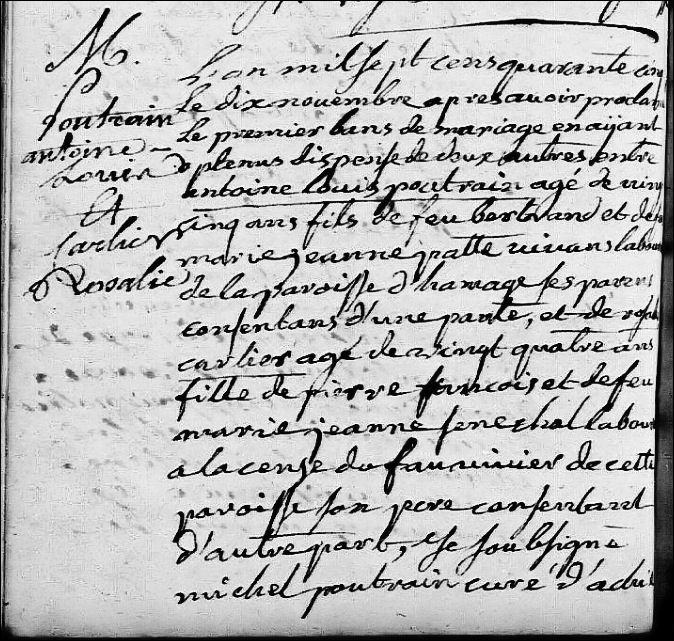 M.
poutrain
antoine
Louis
Et
Carlier
Rosalie
L'an mil sept cens quarante cinq
le dix novembre apres avoir proclam
le premier bans de mariage en aÿant
optenus dispense de deux autres entre
antoine louis poutrain agé de vin
cinq ans fils de feu bertrand et de
marie jeanne patte vivans labou
de la paroisse d'hamage ses parens
consentans d'une parte, et de rosa
carlier age de vingt quatre ans
fille de pierre francois et de feu
marie jeanne senechal labou
a la cense du fauvivier de cette
paroisse son pere consentant
d'autre part, Je soubsigné
michel poutrain curé d'